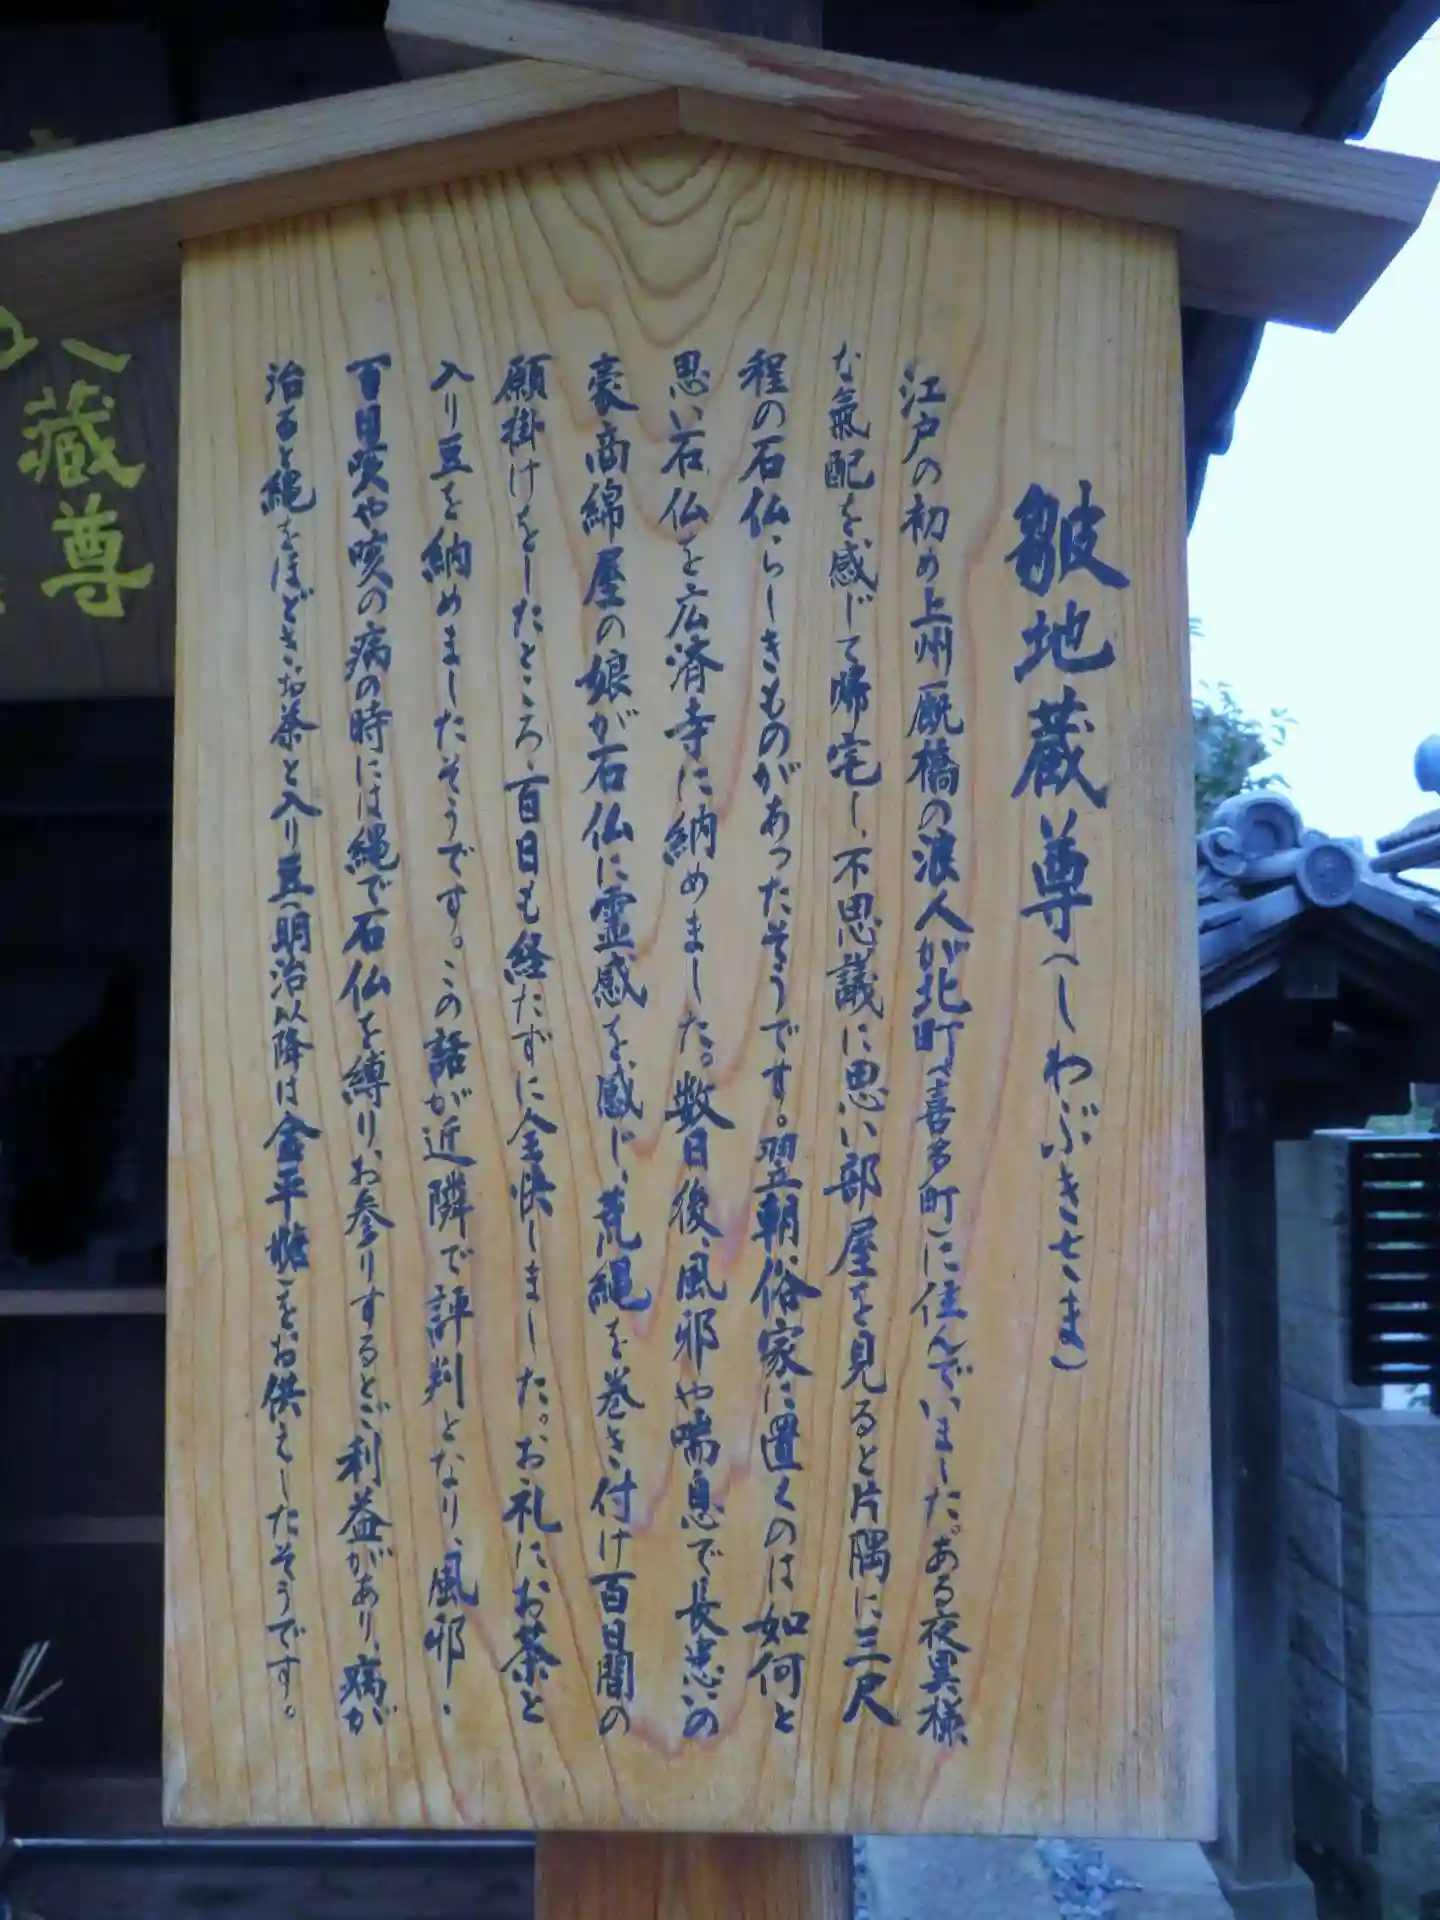 皺地蔵尊(しわぶきさま)
江戸の初め上州厩橋の浪人が北町(喜多町)に住んでいました。ある夜異様
な氣配を感じて帰宅し、不思議に思い部屋を見ると片隅に三尺
程の石仏らしきものがあったそうです。翌朝、俗家に置くのは如何と
思い石仏を広済寺に納めました。数日後、風邪や喘息で長患いの
豪商綿屋の娘が石仏に霊感を感じ、荒縄を巻き付け百日間の
願掛けをしたところ、百日も経たずに全快しました。お礼にお茶と
入り豆を納めましたそうです。この話が近隣で評判となり、風邪・
百日咳や咳の病の時には縄で石仏を縛り、お参りするとご利益があり、病が
治ると縄をほどき、お茶と入り豆(明治以降は金平糖)をお供えしたそうです。
蔵尊